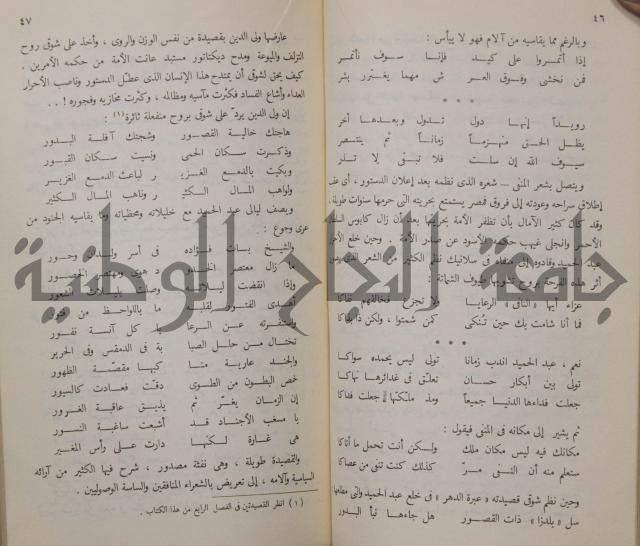 ٤٦
وبالرغم مما يقاسيه من آلام فهو لا ييأس :
إذا ائتمروا على كيد فإنا سوف نأتمر
فمن نخشى وفوق العر ش مهما يغترر بشر
* * *
رويداً إنها دول تدول وبعدها أخر
يظل الحق منهزماً زماناً ثم ينتصر
سيوف الله إن سلت فلا تبقى لا تذر
ويتصل بشعر المنفى – شعره الذى نظمه بعد إعلان الدستور ، أى عقب
إطلاق سراحه وعودته إلى فروق فمصر يستمتع بحريته التى حرمها سنوات طويلة .
وقد كان كثير الآمال بأن تظفر الأمة بحريتها بعد أن زال كابوس السلطان
الأحمر وانجلى غيهب حكمه الأسود عن صدر الأمة . وحين خلع
عبد الحميد وقادوه إلى منفاه فى سلانيك نظم الكثير من الشعر
أثر هذه الفرحة بروح تشوبها طيوف الشماتة :
عزاء أيها « النافى » الرعايا ولا تجزع فخالقهم نفاكا
فما أنا شامت بك حين تُنكى كمن شمتوا ، ولكن ذا بذاكا
* * *
نعم ، عبد الحميد اندب زمانا تولى ليس يحمده سواكا
تولى بين أبكار حسان تعلق فى غدائرها نهاكا
جعلت فداءها الدنيا جميعاً ومذ ملكتها جعلت فداكا
ثم يشير إلى مكانه فى المنفى فيقول :
مكانك فيه ليس مكان ملك ولكن أنت تحمل ما أتاكا
ستعلم منه أن النفى مرّ كذلك كنت تنفى من عصاكا
وحين نظم شوقى قصيدته « عبرة الدهر » فى خلع عبد الحميد والتى مطلعها
سل « يلدزا » ذات القصور هل جاءها نبأ البدور
٤٧
عارضها ولى الدين بقصيدة من نفس الوزن والروى ، وأخذ على شوقى روح
التزلف والميوعة ومدح ديكتاتور مستبد عانت الأمة من حكمه الأمرين .
كيف يحق لشوقى أن يمتدح هذا الإنسان الذى عطّل الدستور وناصب الأحرار
العداء وأشاع الفساد فكثرت مآسيه ومظالمه ، وكثرت مخازيه وفجوره ! . .
إن ولى الدين يردّ على شوقى بروح منفعلة ثائرة (١) :
هاجتك خالية القصور وشجتك آفلة البدور
وذكرت سكان الحمى ونسيت سكان القبور
وبكيت بالدمع الغزيـ ر لباعث الدمع الغزير
ولواهب المال الكثيـ ر وناهب المال الكثير
ويصف ليالى عبد الحميد مع خليلاته ومحظياته وما يقاسيه الجنود من
عرى وجوع :
والشيخ بات فؤاده فى أسر ولدان وحور
ما زال معتصر الخدو د هوى ومهتصر الخصور
وإذا انقضت ليلاته وصلت بليلات الشعور
أهدى الفتور لقلبه ما باللواحظ من فتور
واستنفرته عن الرعا يا كل آنسة نفور
تختال من حلل الصبا بة فى الدمقس وفى الحرير
والجند عارية منا كبها مقصّمة الظهور
خمص البطون من الطوى دقت فعادت كالسيور
إن الزمان يغرّ ثم يذيق عاقبة الغرور
يا مسغب الأجناد قد أشبعت ساغبة النسور
هى غارة لكنها دارت على رأس المغير
والقصيدة طويلة ، وهى نفثة مصدور ، شرح فيها الكثير من آرائه
السياسية وآلامه ، إلى تعريض بالشعراء المنافقين والساسة الوصوليين .
(١) انظر القصيدتين فى الفصل الرابع من هذا الكتاب .
جامعة النجاح الوطنية